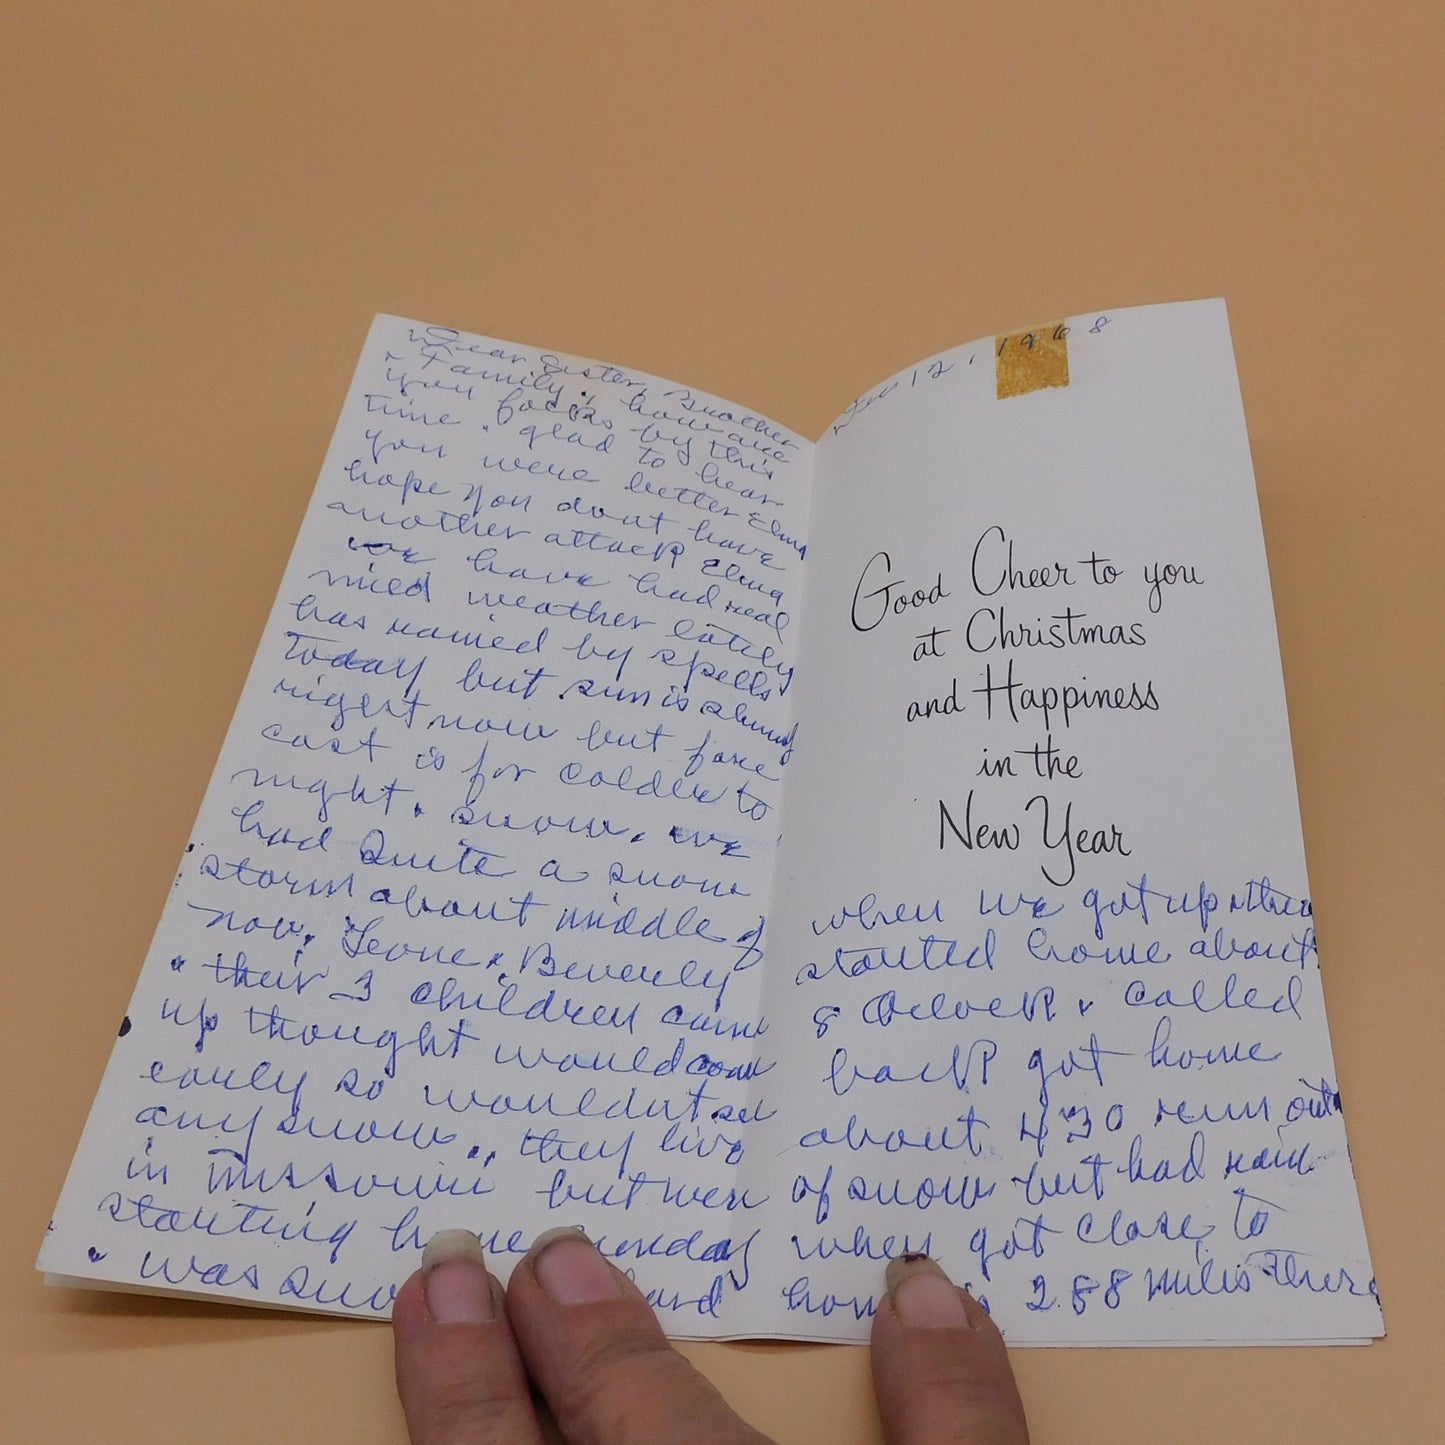 Dear Sister, Brother
& Family, how are
you folks by this
time. glad to hear
you were better Elma
hope you dont have
another attack Elma
we have had real
mied weather lately
has rained by spells
Today but sun is shining
right now but fore
cast is for colder to
night. snow. we
had quite a snow
storm about middle of
nov. Leone & Beverly
& their 3 children came
up thought would come
early so wouldnt
any snow, they live
in missouri but when
starting home Sunday
was hard
Dec 12, 1968
Good Cheer to you
at Christmas
and Happiness
in the
New Year
when we got up they
started home about
8 Oclock & called
back got home
about 430 run out
of snow but had rain
when got close to
home is 288 miles there